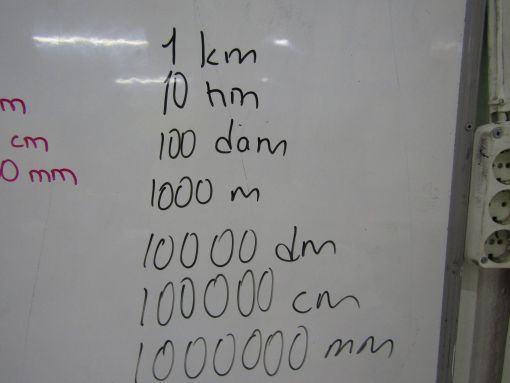 1 km
10 hm
100 dam
1000 m
10000 dm
100000 cm
1000000 mm
m
cm
0 mm